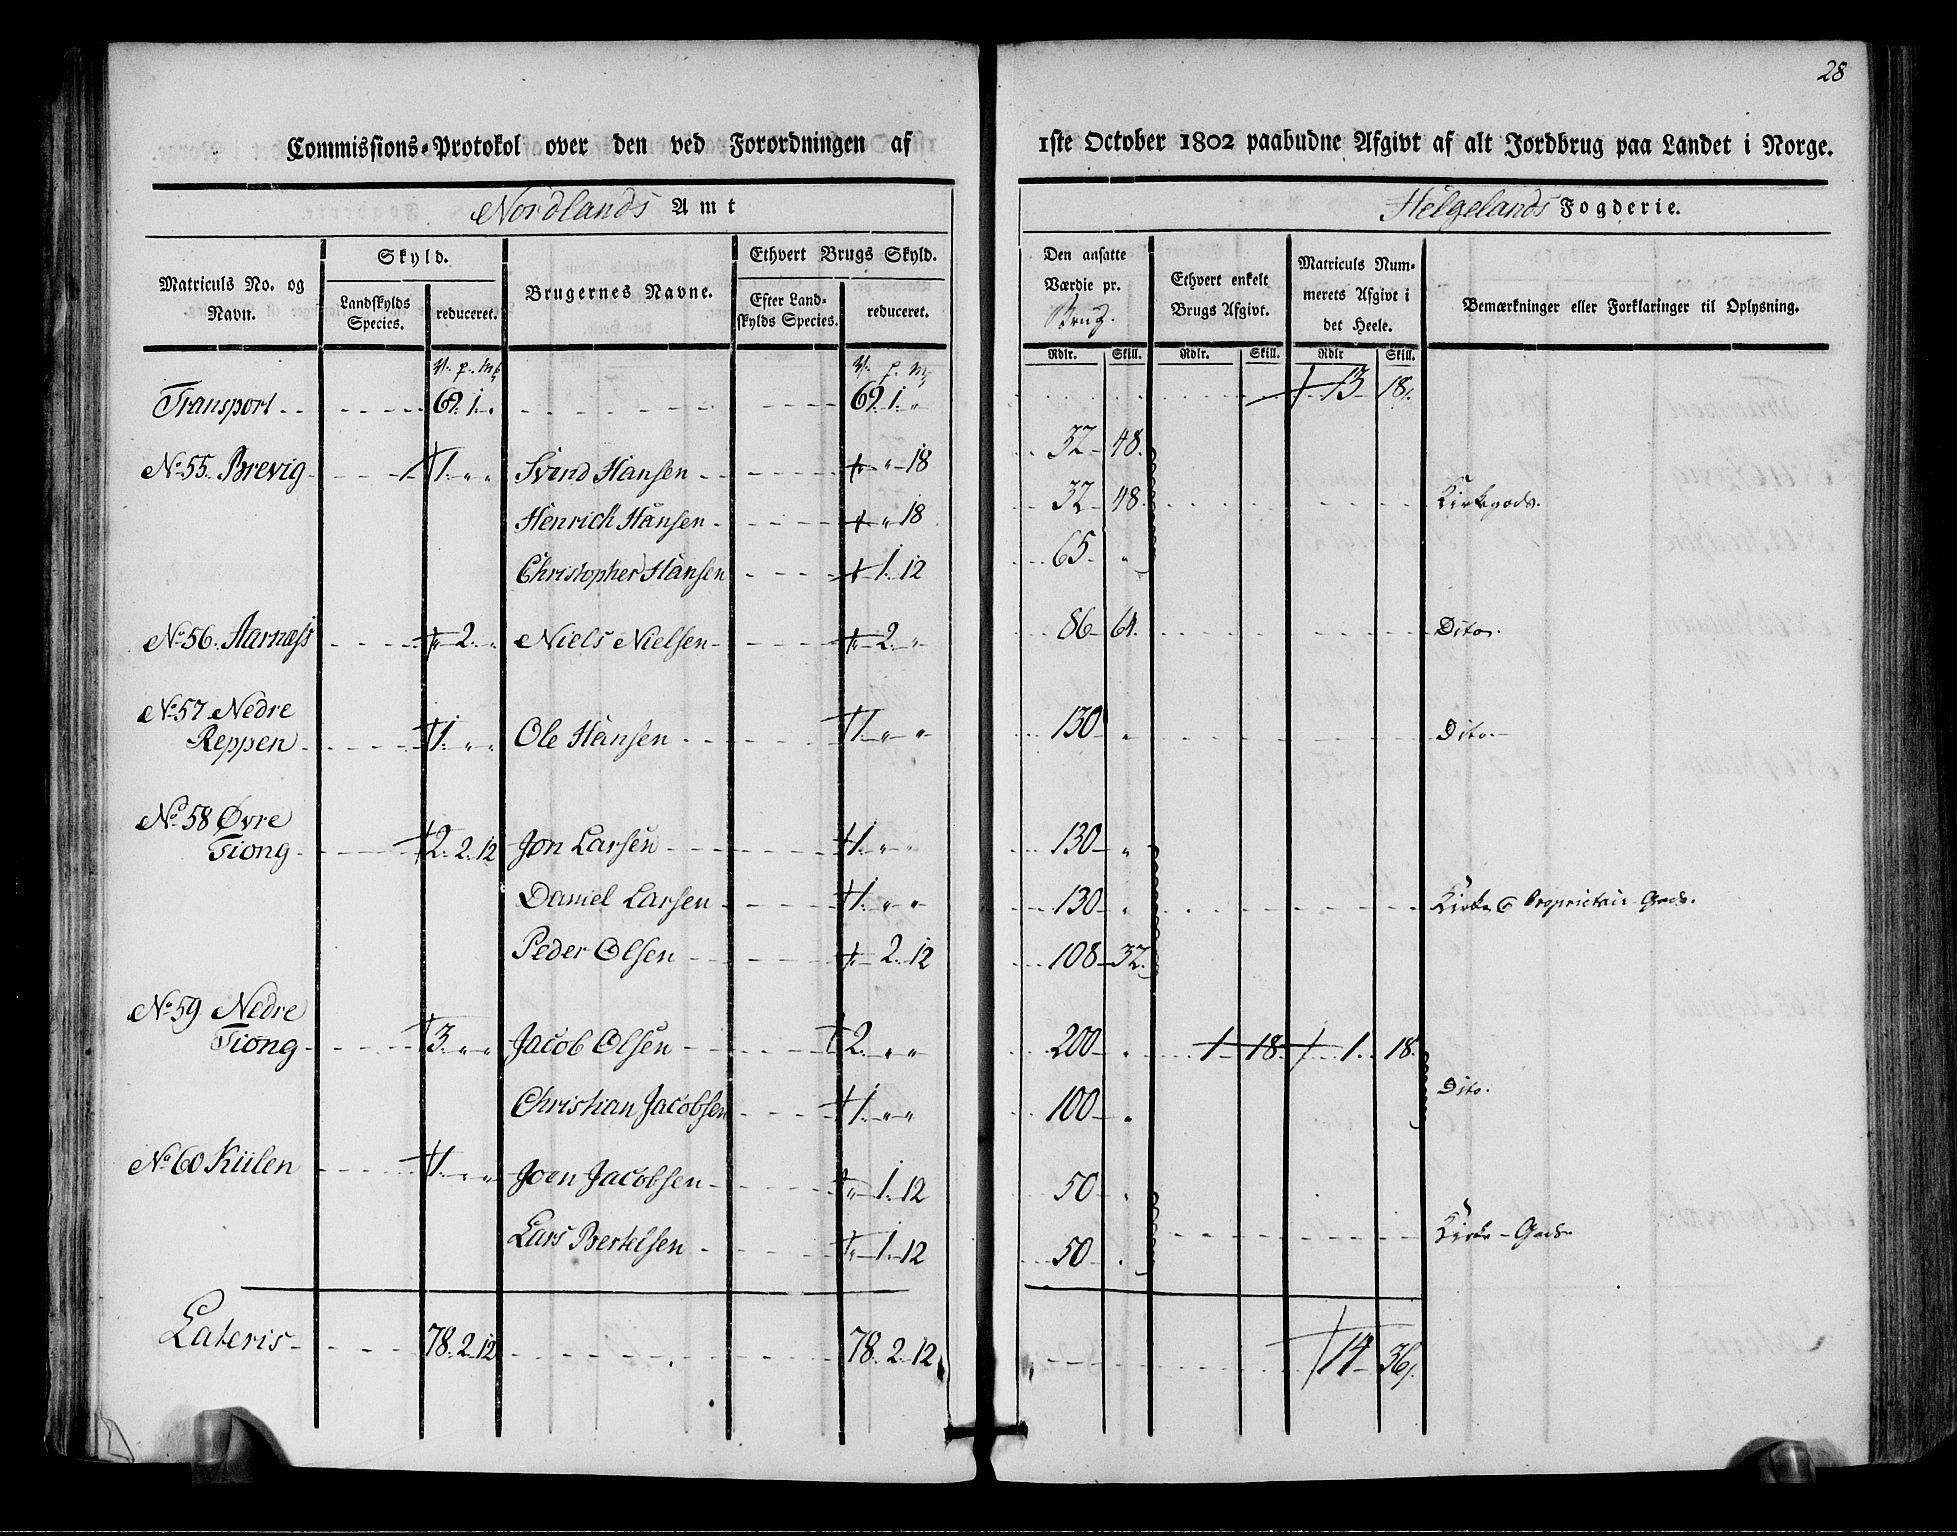 28
Commissions-Protokol over den ved Forordningen af 1ste October 1802 paabudne Afgivt af alt Jordbrug paa Landet i Norge.
Nordlands Amt Helgelands Fogderie.
Matriculs No. og Navn. Skyld. Landskylds Species. reduceret. Brugernes Navne. Ethvert Brugs Skyld. Efter Landskylds Species. reduceret. Den ansatte Værdie pr. Brug. Ethvert enkelt Brugs Afgivt. Matriculs Nummerets Afgivt i det Heele. Bemærkninger eller Forklaringer til Oplysning.
V. p. mk V. p. mk Rdlr. Skill. Rdlr. Skill. Rdlr Skill.
Transport 69. 1. „ 69. 1. „ 13 18
No. 55. Brevig 1. „ „ Svend Hansen „ „ 18 32 48
Henrich Hansen „ „ 18 32 48 Kirkegods.
Christopher Hansen „ 1. 12 65 „
No. 56. Aarnæss „ 2. „ Niels Nielsen „ 2. „ 86 64 Dito.
No. 57 Nedre
Reppen 1. „ „ Ole Hansen 1. „ „ 130 „ Dito
No. 58 Øvre
Tiong 2. 2. 12 Jon Larsen 1. „ „ 130 „
Daniel Larsen 1. „ „ 130 „ Kirke & Proprietair Gods.
Peder Olsen „ 2. 12 108 32
No. 59 Nedre
Tiong 3. „ „ Jacob Olsen 2. „ „ 200 „ 1 18 1 18
Christian Jacobsen 1. „ „ 100 „ Dito.
No. 60 Kiilen 1. „ „ Joen Jacobsen „ 1. 12 50 „
Lars Bertelsen „ 1. 12 50 „ Kirke-Gods
Lateris 78. 2. 12 78. 2. 12 14 36